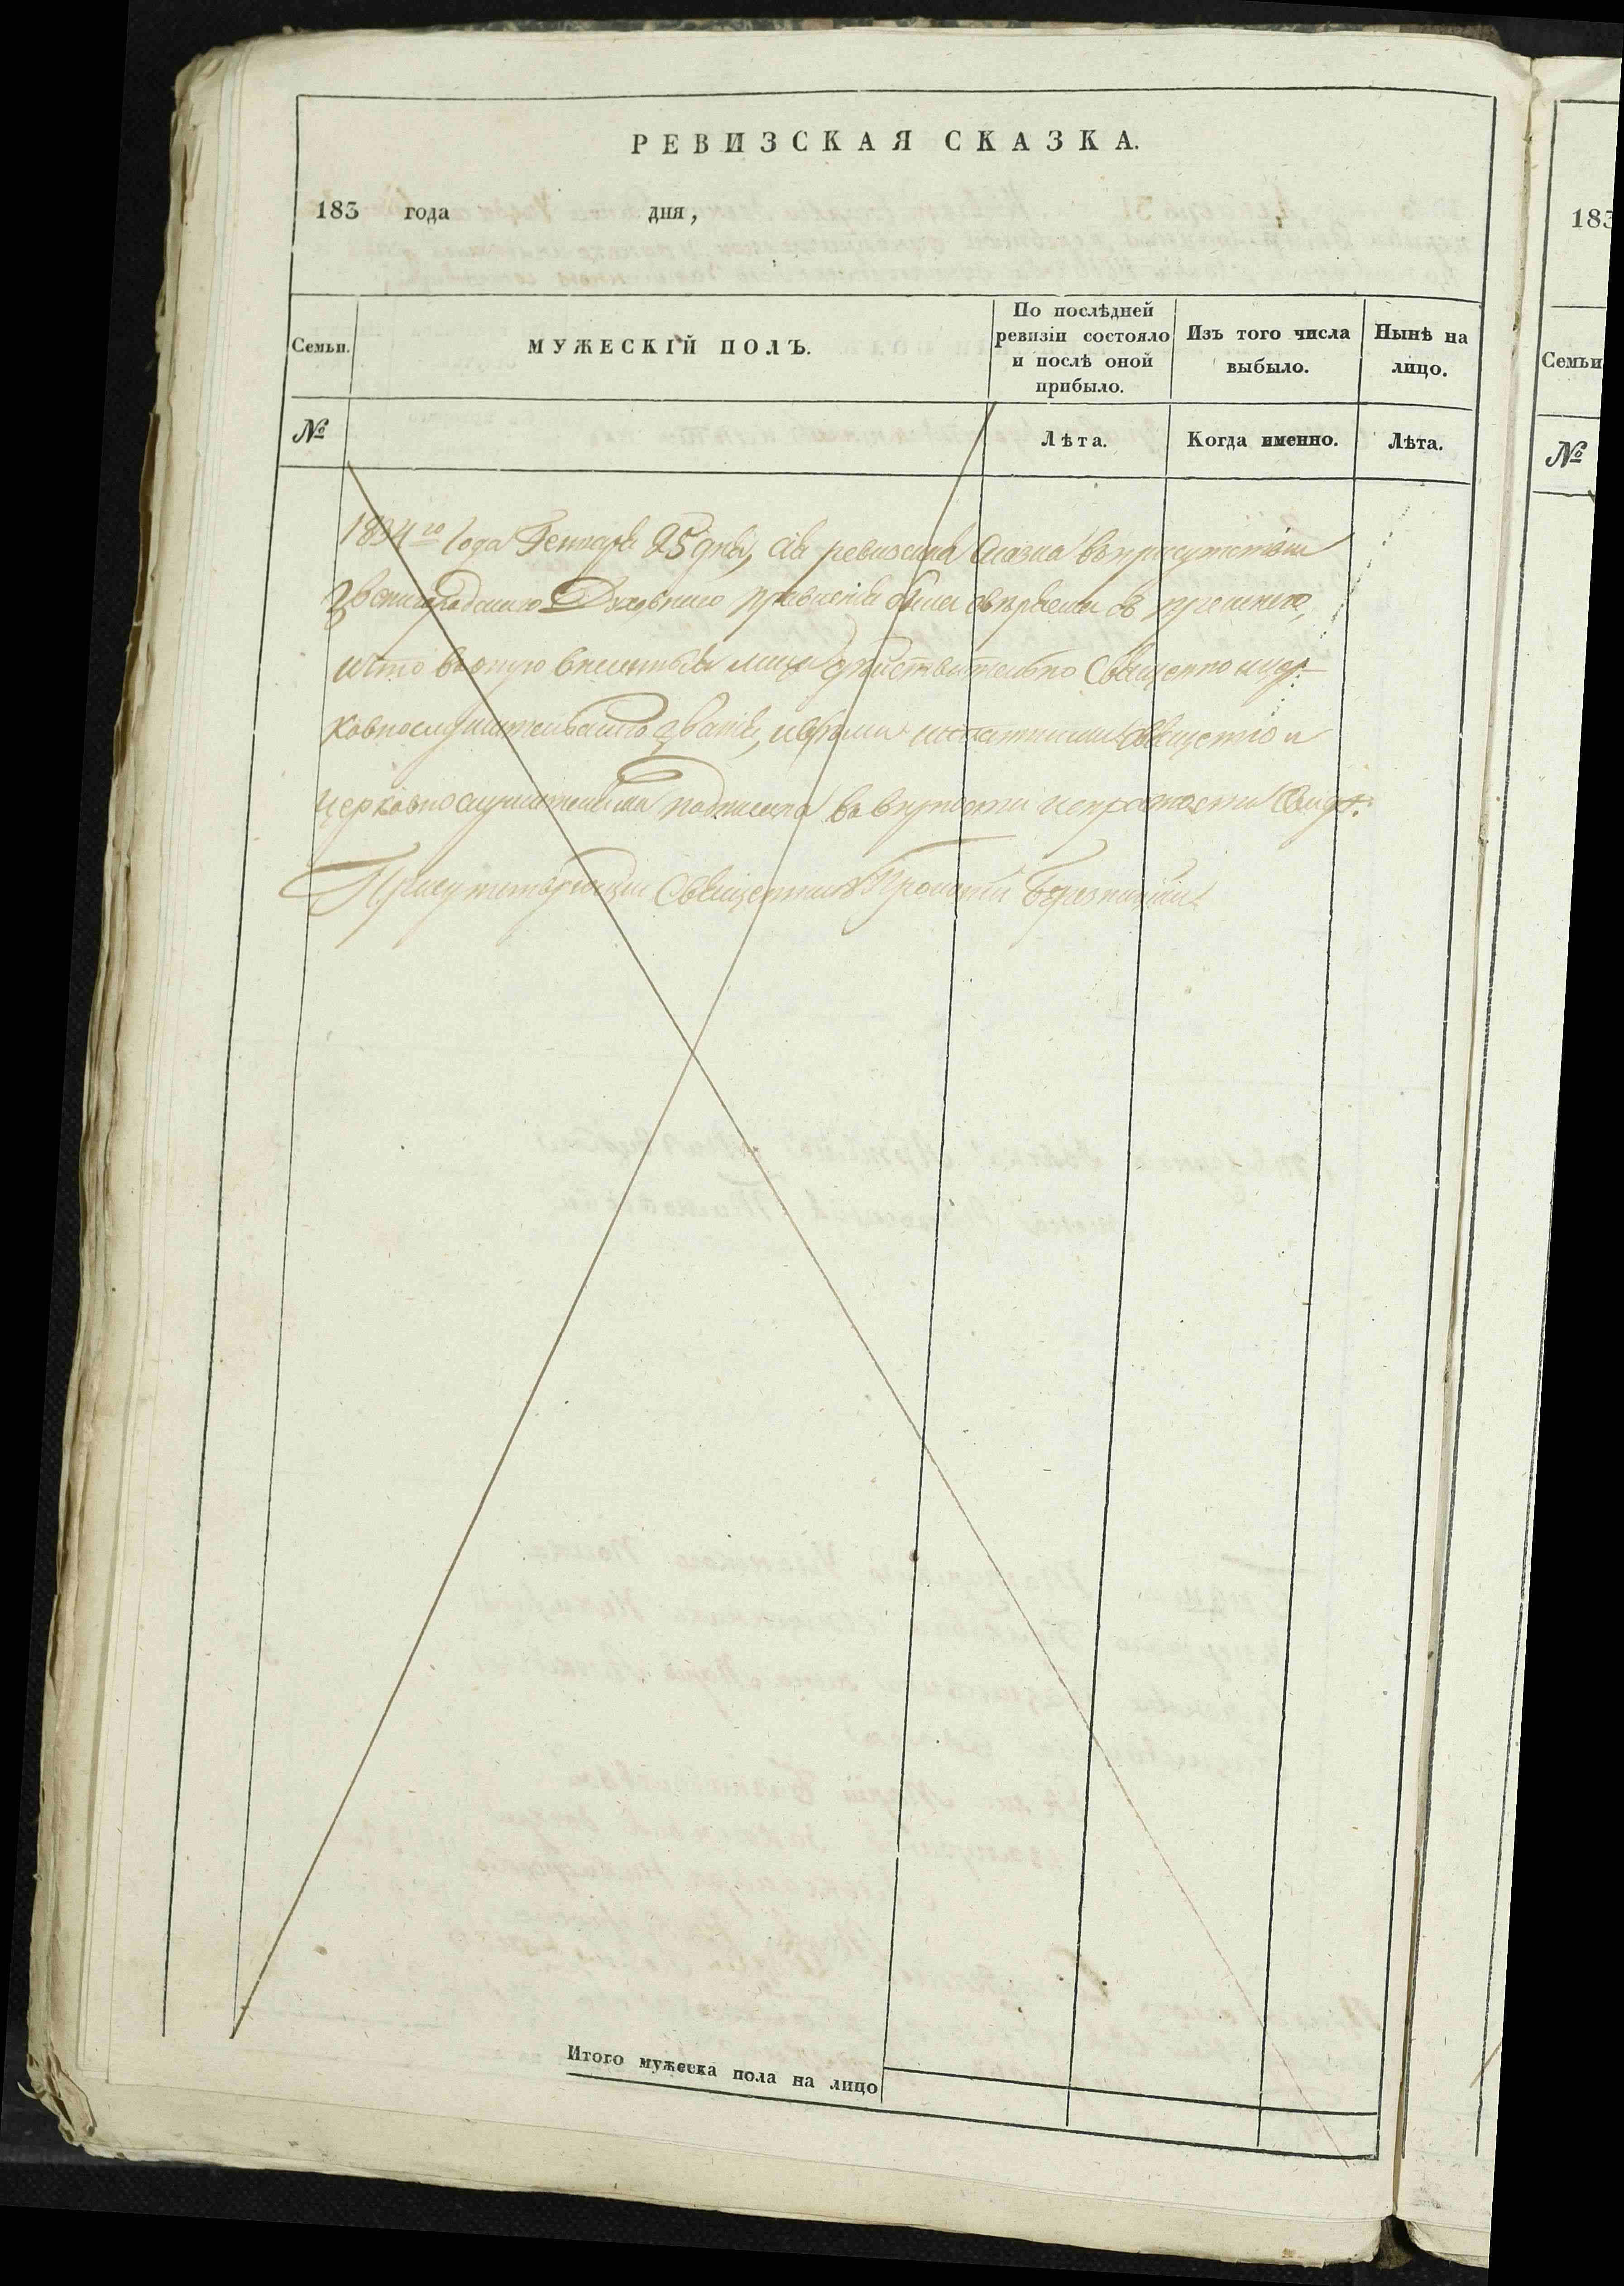 РЕВИЗСКАЯ СКАЗКА.
183 года дня,
Семьи.
МУЖЕСКІЙ ПОЛЪ.
По послѣдней ревизіи состояло и послѣ оной прибыло.
Изъ того числа выбыло.
Нынѣ на лицо.
№
Лѣта.
Когда именно.
Лѣта.
1834го года Генваря 25 дня, сія ревизская сказка въ присутствіи
Звенигородскаго Духовнаго правленія была свѣряема съ прежнею,
и что въ оную внесенныя лица дѣйствительно Священно и цер-
ковнослужительскаго званія,
церковнослужителями подписана въ вѣрности и исправности Свидѣ:
Присутствующій Священникъ
Итого мужеска пола на лицо
183
Семьи
№